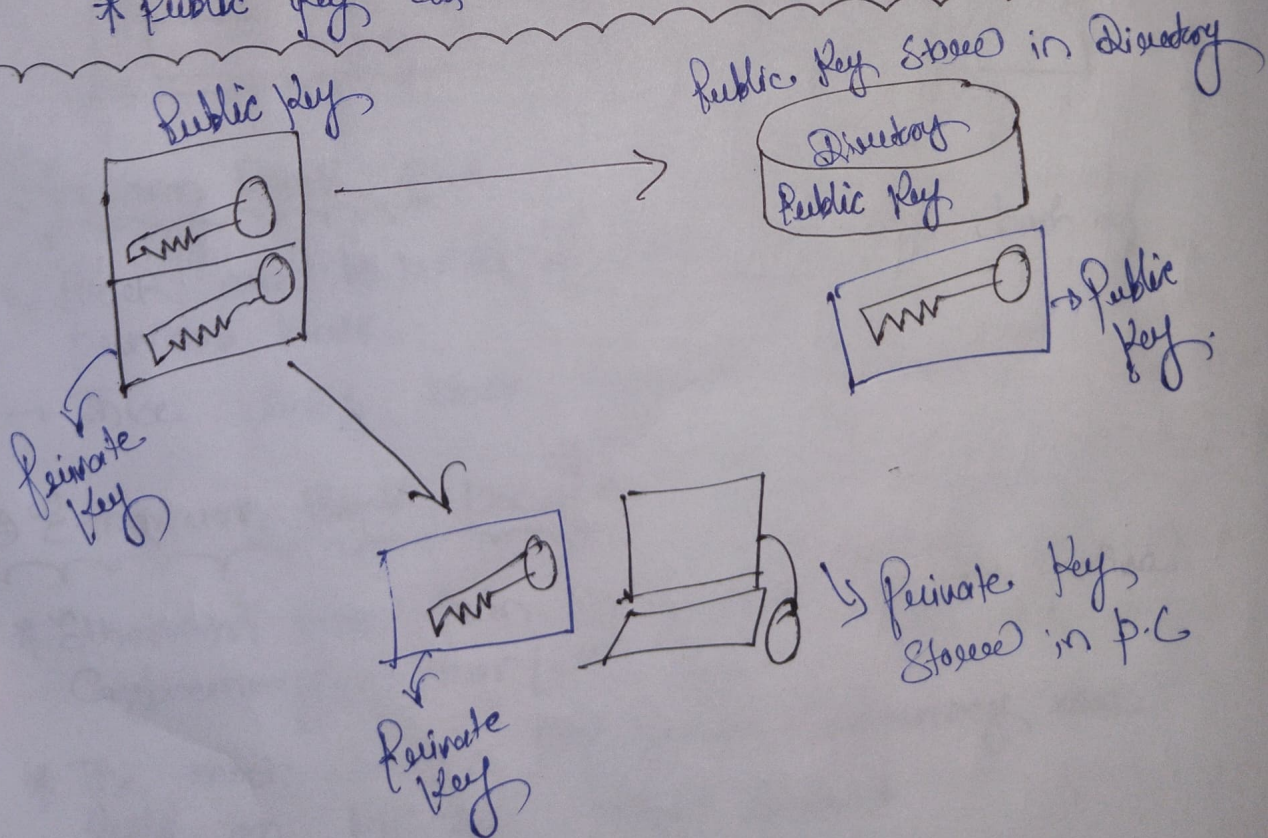 * Public Key
Public Key
Public Key Store in Directory
Directory
Public Key
Public
Key.
Private
Key
Private Key
Store in P.C
Private
Key